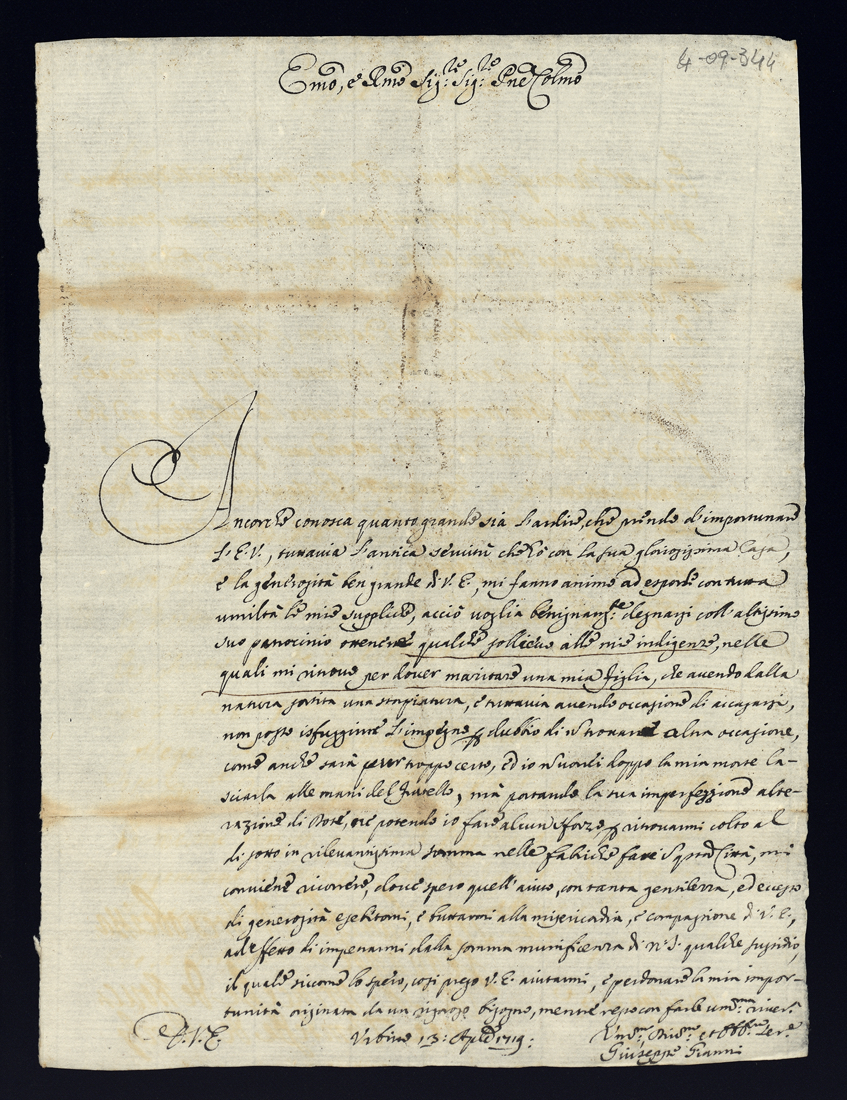 4-09-344
Emo, e Rmo Sigre Sigre Pne Colmo
Ancorche conosca quanto grande sia l'ardire, che prendo d'importunare
l'E.V., tuttavia l'antica servitù che hò con la sua gloriosissima Casa,
e la generosità ben grande di V.E., mi fanno animo ad esporle con tutta
umiltà le mie suppliche, acciò voglia benignamte degnarsi coll'altissimo
suo patrocinio ottenere qualche sollievo alle mie indigenze, nelle
quali mi ritrovo per dover maritare una mia figlia, che avendo dalla
natura sortita una stroppiatura, e tuttavia avendo occasione di accasarsi,
non posso isfuggirne l'impegno p dubbio di ritrovare altra occasione,
come anche sarà pur troppo certo, ed io vuordi doppo la mia morte la-
sciarla alle mani del fratello, mà portando la sua imperfezzione alte-
razione di Dote, ne potendo io fare alcun sforzo p ritrovarmi colto al
di sotto in rilevantissima somma nelle fabriche fatte i qsta Città, mi
conviene ricorrere, dove spero quell'aiuto, con tanta gentilezza, ed eccesso
di generosità esebitomi, e buttarmi alla misericordia, e compassione di V.E.,
ad effetto di impetrarmi dalla somma munificenza di N.S. qualche sussidio,
il quale siccome lo spero, così prego V.E. aiutarmi, e perdonare la mia impor-
tunità originata da un bisogno, mentre resto con farle umma river.
D.V.E.
Urbino 13: Aple 1719:
Umo Divmo et Obbmo Sere
Giuseppe Gianni